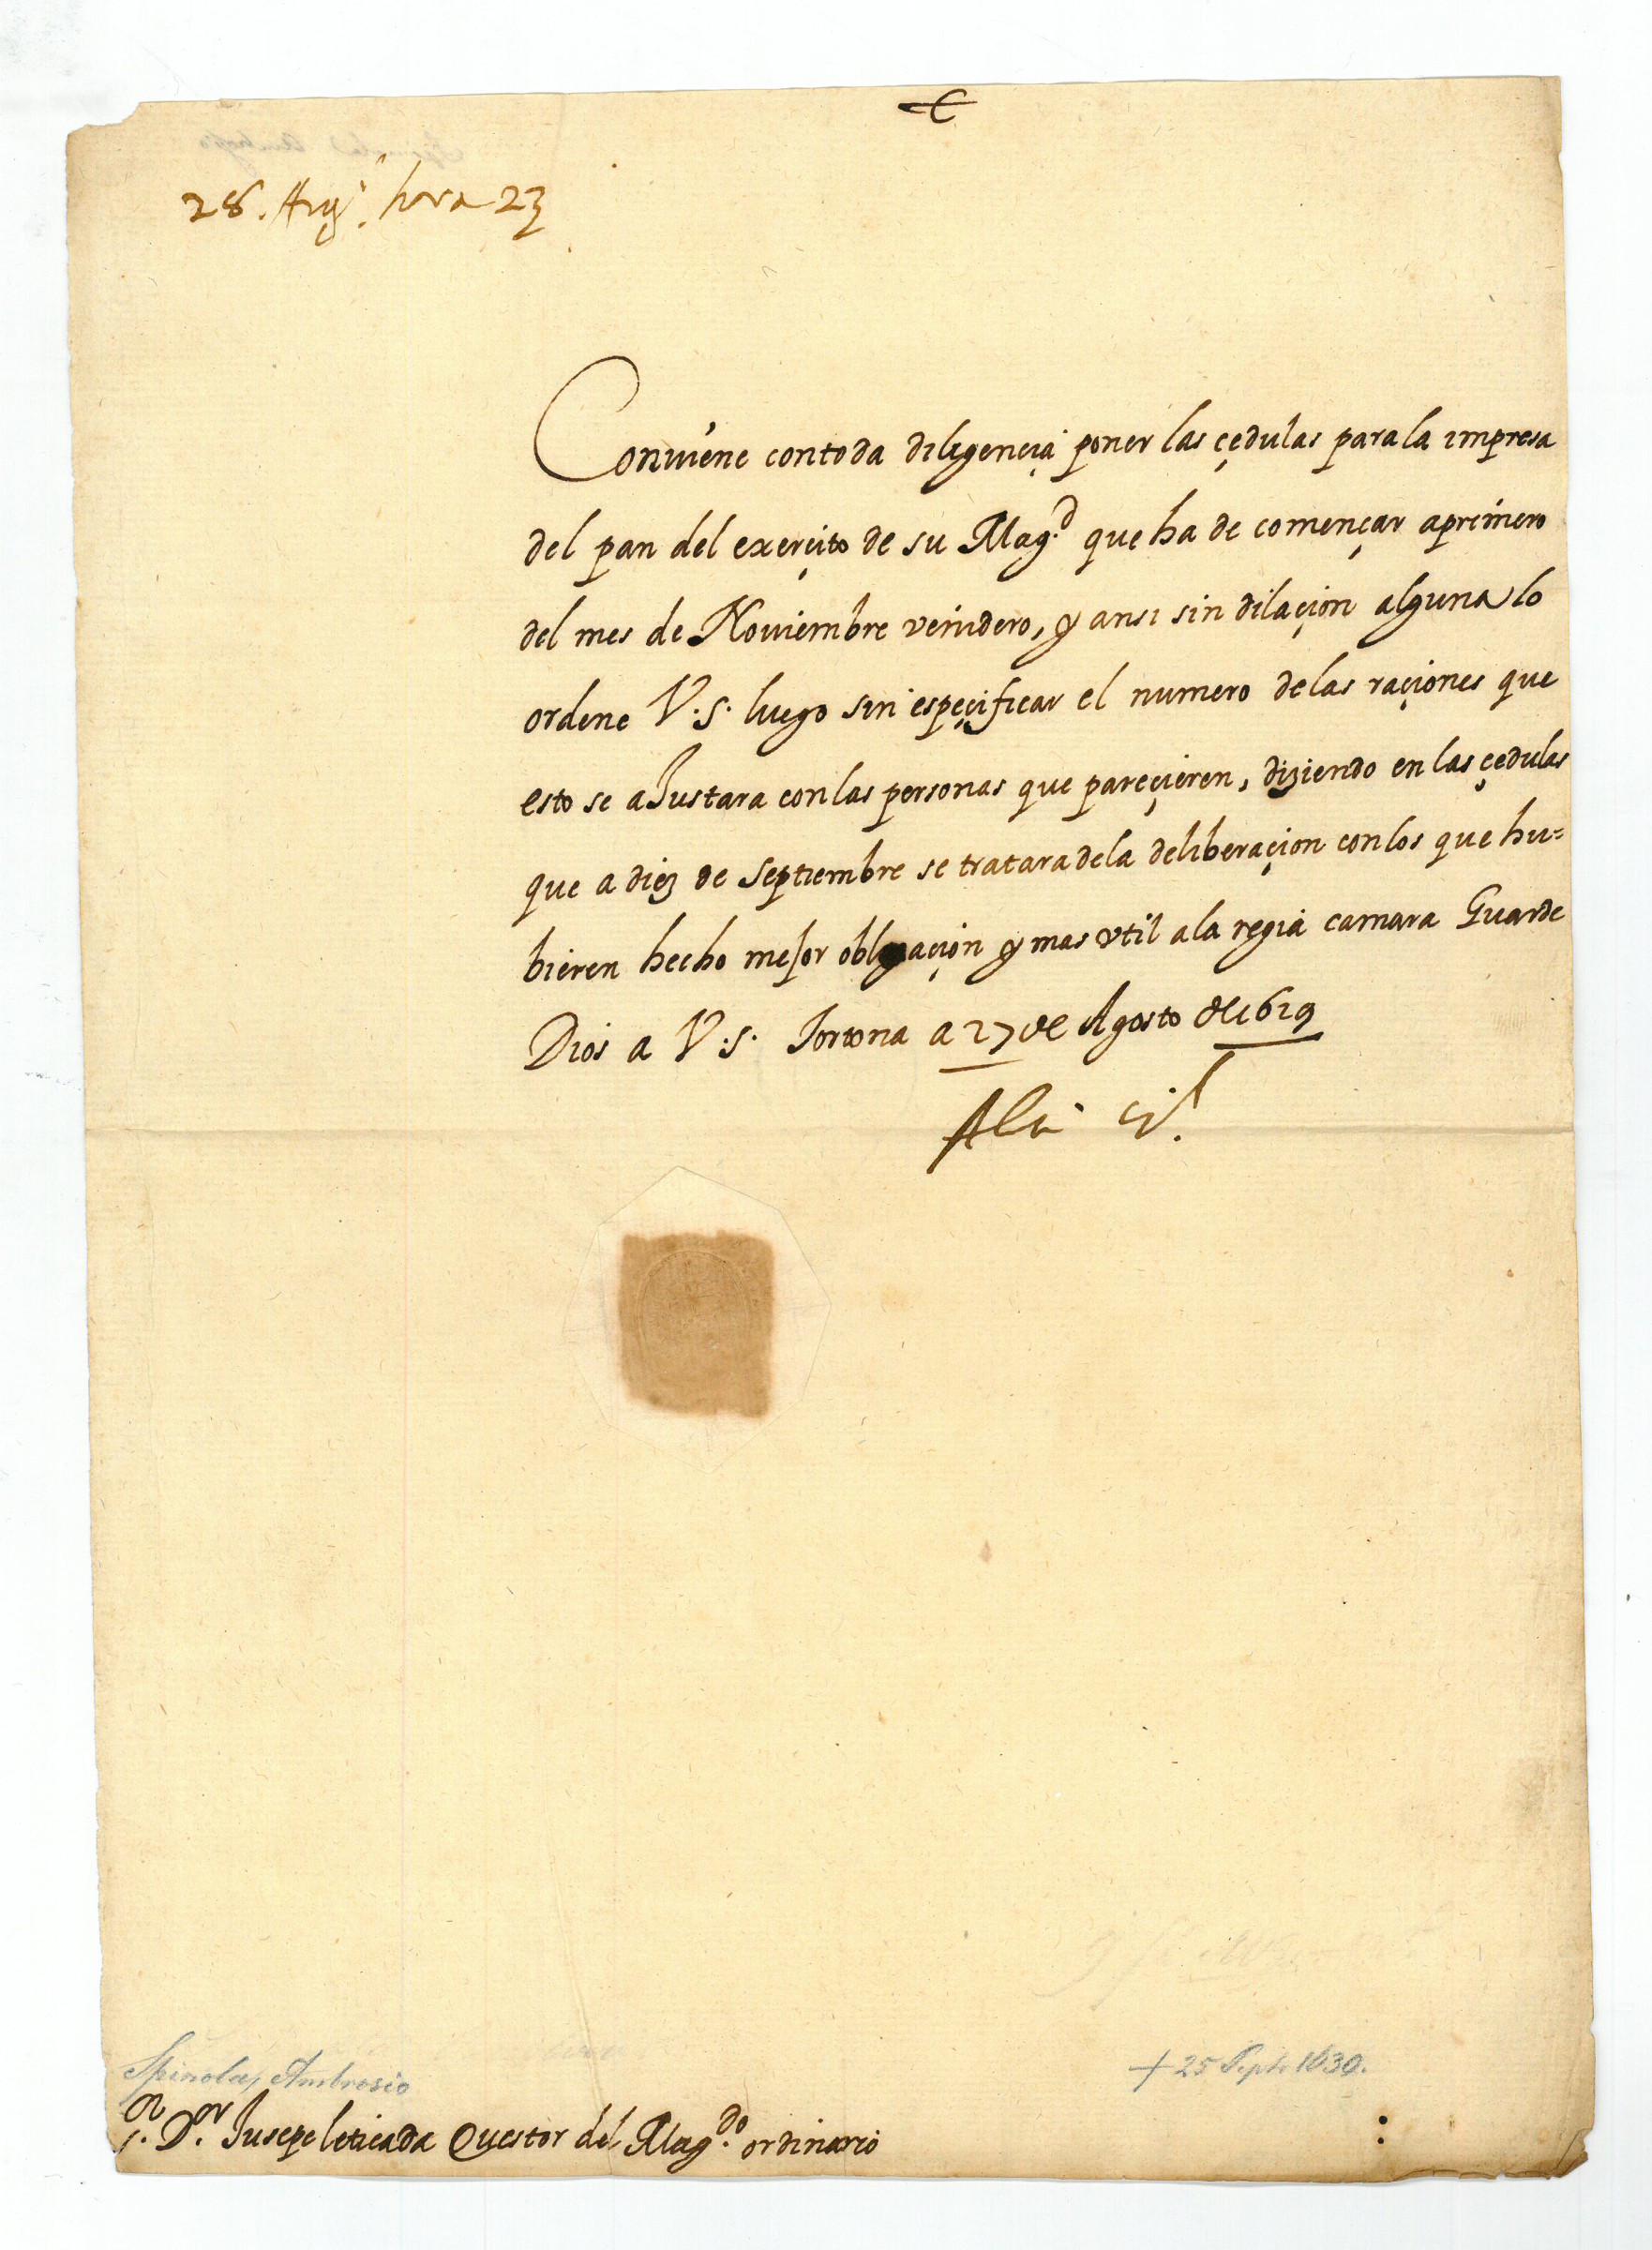 28. Aug.ⁱ hora 23
Conuiene contoda diligençia poner las çedulas parala impresa
del pan del exerçito de su Mag.d que ha de començar aprimero
del mes de Nouiembre venidero, y ansi sin dilaçion alguna lo
ordene V.S. luego sin espeçificar el numero delas raçiones que
esto se aJustara conlas personas que pareçieren, diziendo en las çedulas
que a diez de septiembre se tratara dela deliberaçion conlos que hu=
bieren hecho mejor obligaçion y mas vtil ala regia camara Guarde
Dios a V.S. Tortona a 27 de Agosto de 1619
Spinola, Ambrosio
+ 25 Sept. 1630.
S.or D.or Jusepe Questor del Mag.do ordinario